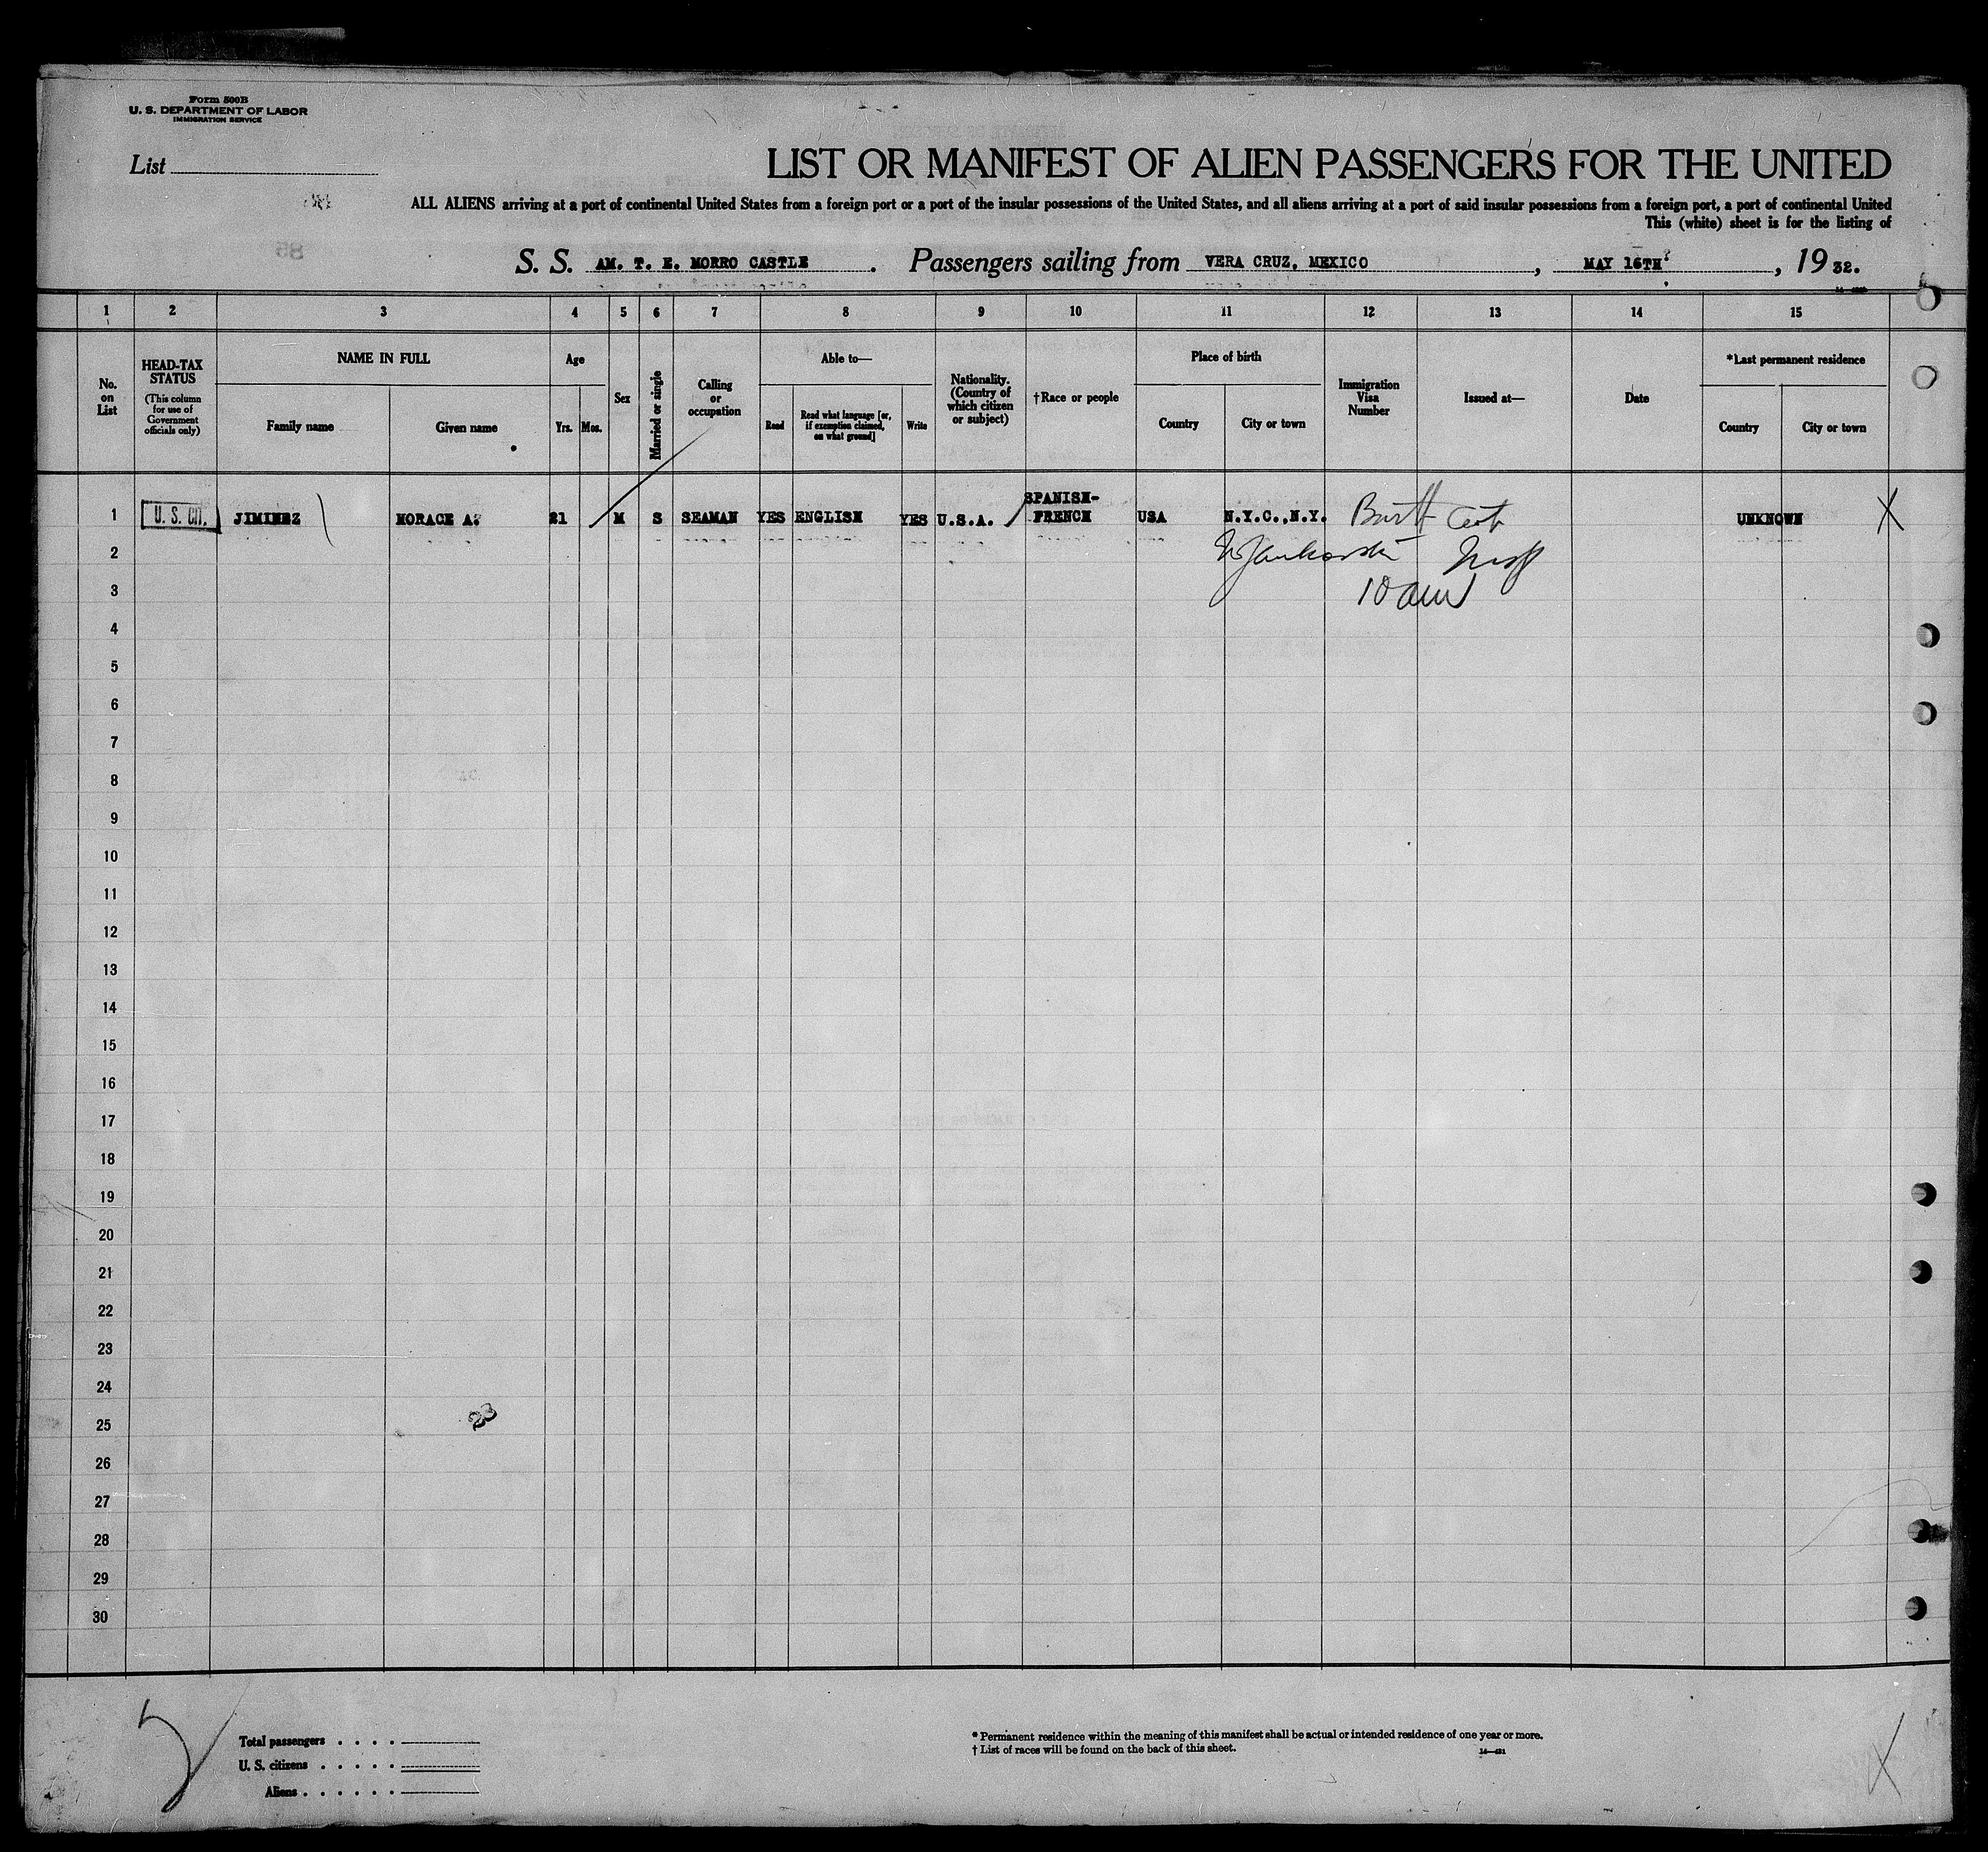 Form 500B
U. S. DEPARTMENT OF LABOR
IMMIGRATION SERVICE
List
LIST OR MANIFEST OF ALIEN PASSENGERS FOR THE UNITED
ALL ALIENS arriving at a port of continental United States from a foreign port or a port of the insular possessions of the United States, and all aliens arriving at a port of said insular possessions from a foreign port, a port of continental United
This (white) sheet is for the listing of
S. S. AM. T. E. MORRO CASTLE. Passengers sailing from VERA CRUZ, MEXICO, MAY 16TH, 1932.
1 2 3 4 5 6 7 8 9 10 11 12 13 14 15
No. on List
HEAD-TAX STATUS
(This column for use of Government officials only)
NAME IN FULL
Family name
Given name
Age
Yrs.
Mos.
Sex
Married or single
Calling or occupation
Able to—
Read
Read what language [or, if exemption claimed, on what ground]
Write
Nationality. (Country of which citizen or subject)
†Race or people
Place of birth
Country
City or town
Immigration Visa Number
Issued at—
Date
*Last permanent residence
Country
City or town
1 U. S. CIT. JIMINEZ HORACE A. 21 M S SEAMAN YES ENGLISH YES U.S.A. SPANISH-FRENCH USA N.Y.C.,N.Y. UNKNOWN X
10 am
2
3
4
5
6
7
8
9
10
11
12
13
14
15
16
17
18
19
20
21
22
23
24
25
23
26
27
28
29
30
Total passengers . . . .
U. S. citizens . . . . .
Aliens . . . . . .
* Permanent residence within the meaning of this manifest shall be actual or intended residence of one year or more.
† List of races will be found on the back of this sheet.
X